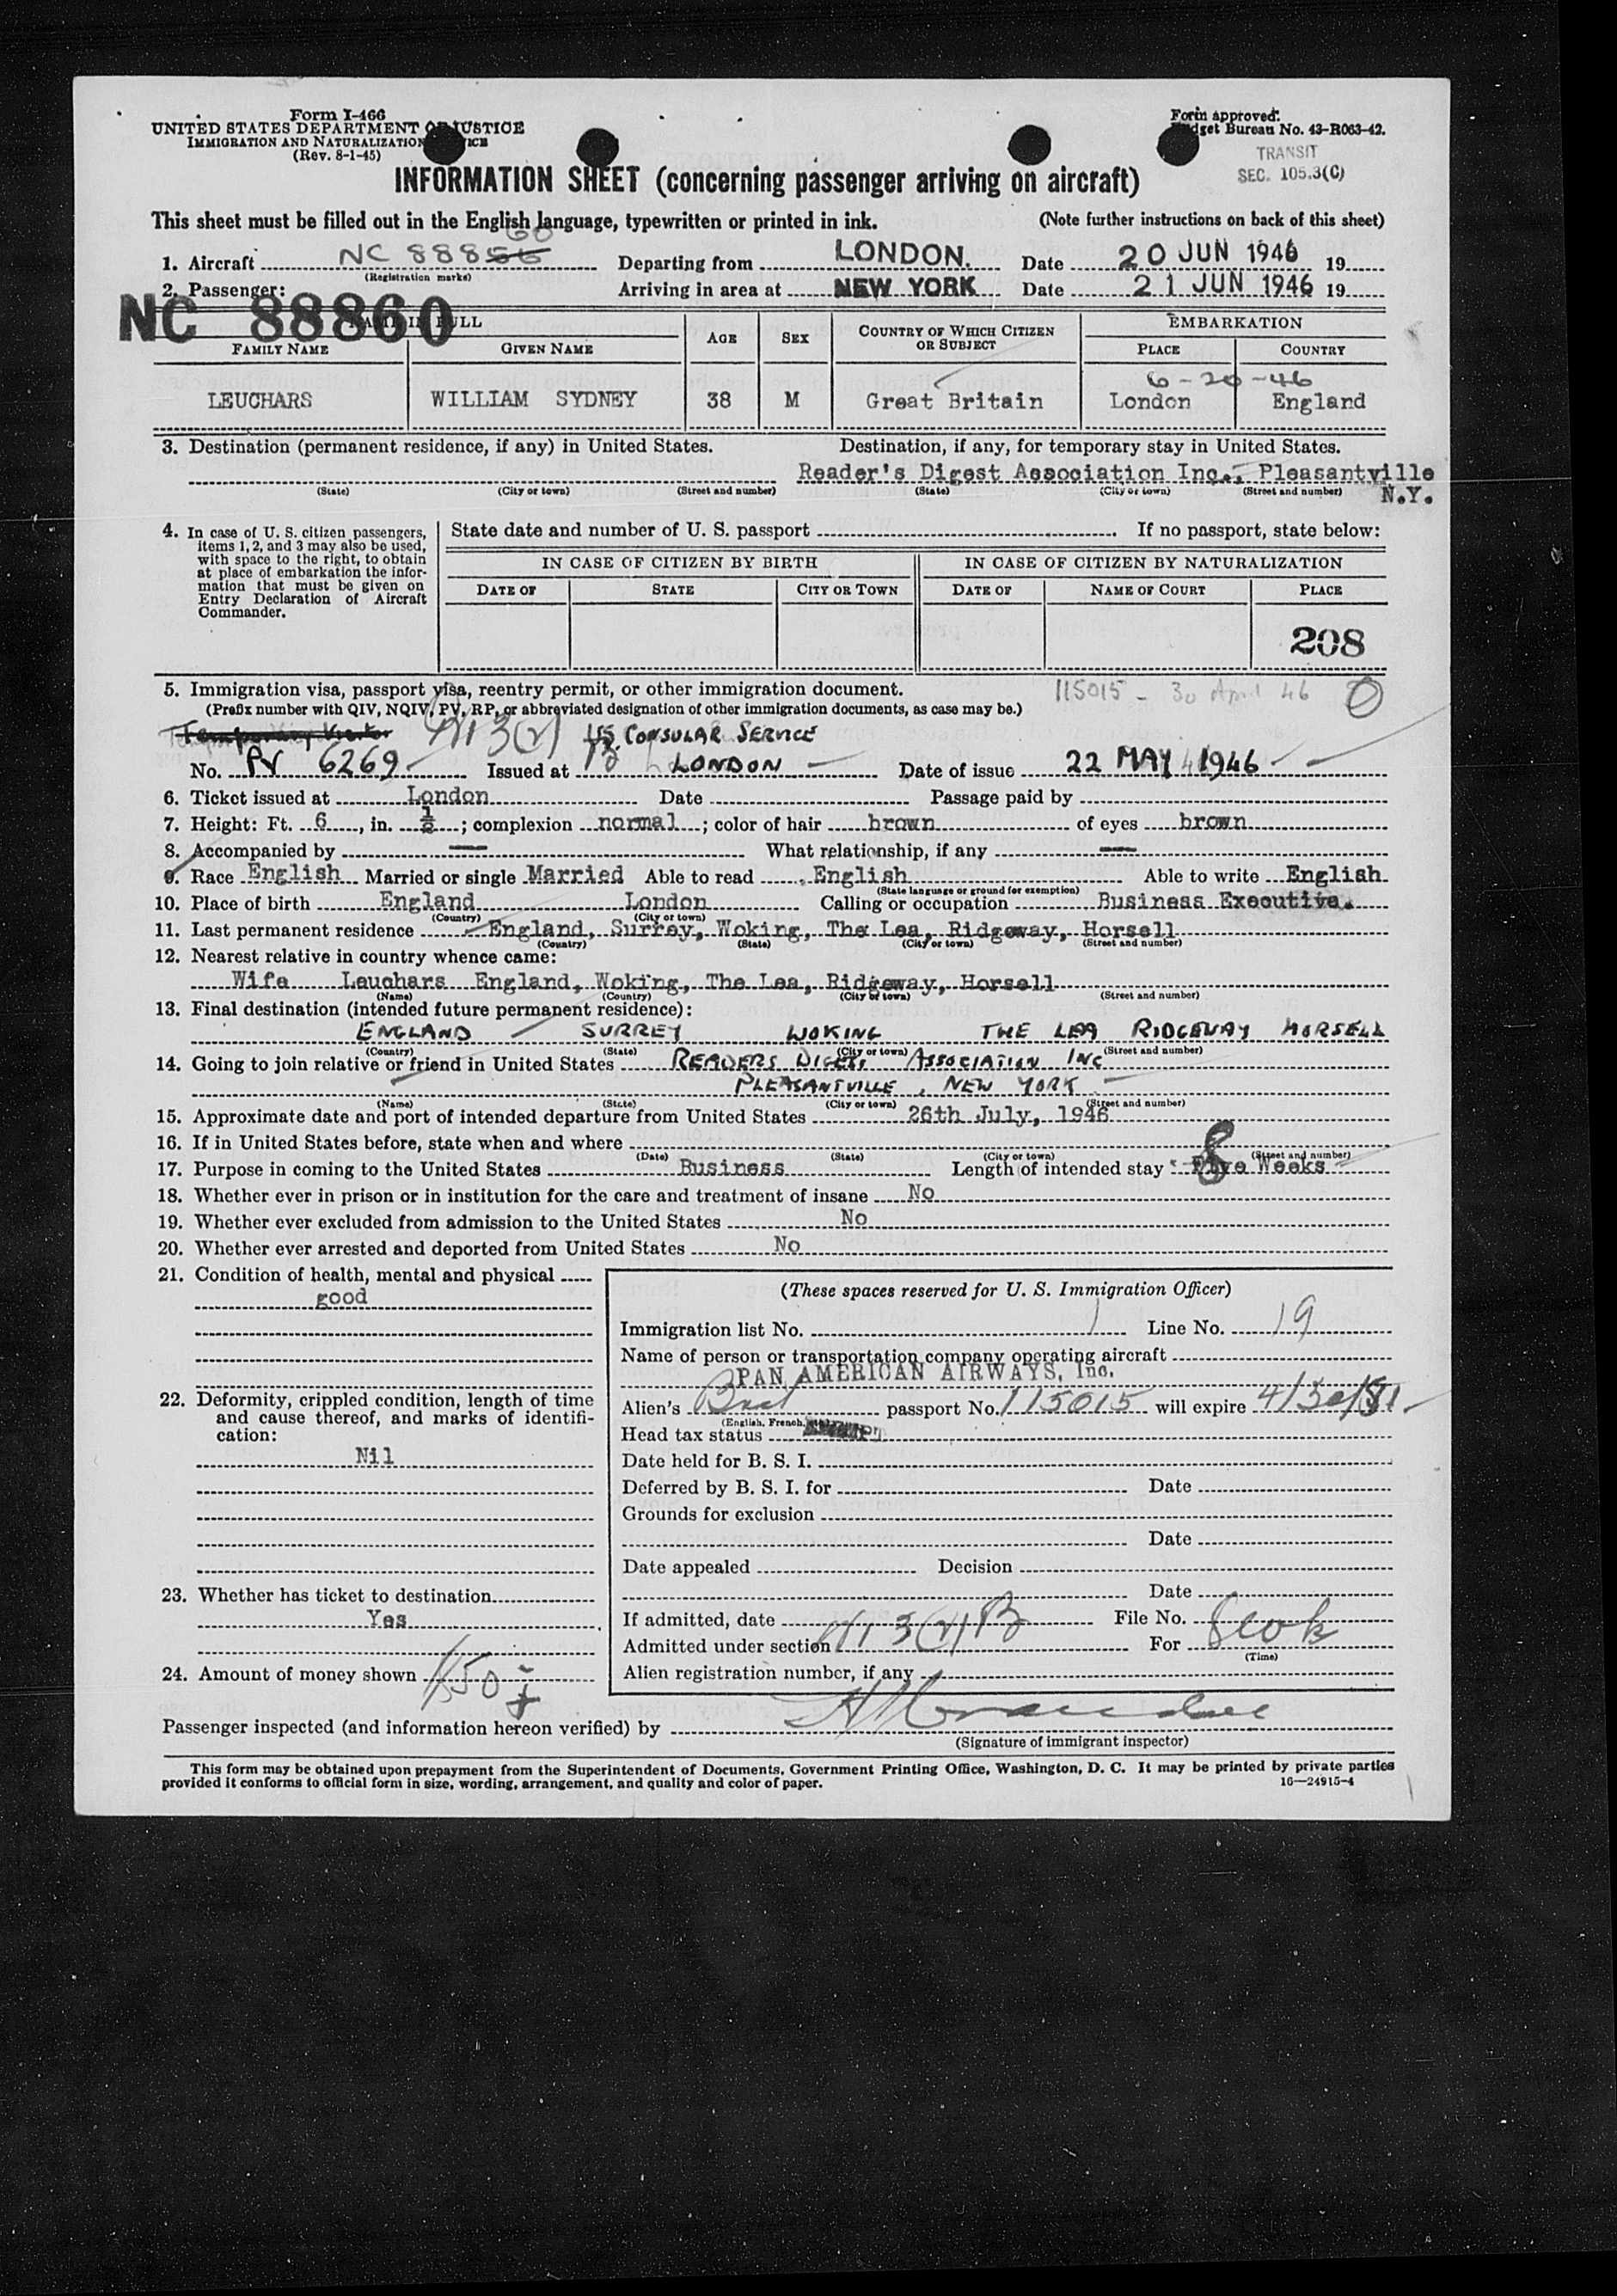 Form I-466
UNITED STATES DEPARTMENT OF JUSTICE
IMMIGRATION AND NATURALIZATION SERVICE
(Rev. 8-1-45)
Form approved.
Budget Bureau No. 43-R063-42.
TRANSIT
SEC. 105.3(C)
INFORMATION SHEET (concerning passenger arriving on aircraft)
This sheet must be filled out in the English language, typewritten or printed in ink. (Note further instructions on back of this sheet)
60
1. Aircraft NC 88856 Departing from LONDON. Date 20 JUN 1946 19
(Registration marks)
2. Passenger: Arriving in area at NEW YORK Date 21 JUN 1946 19
NC 88860
NAME IN FULL AGE SEX COUNTRY OF WHICH CITIZEN OR SUBJECT EMBARKATION
FAMILY NAME GIVEN NAME PLACE COUNTRY
6-20-46
LEUCHARS WILLIAM SYDNEY 38 M Great Britain London England
3. Destination (permanent residence, if any) in United States. Destination, if any, for temporary stay in United States.
Reader's Digest Association Inc., Pleasantville
N.Y.
(State) (City or town) (Street and number) (State) (City or town) (Street and number)
4. In case of U. S. citizen passengers,
items 1, 2, and 3 may also be used,
with space to the right, to obtain
at place of embarkation the infor-
mation that must be given on
Entry Declaration of Aircraft
Commander.
State date and number of U. S. passport If no passport, state below:
IN CASE OF CITIZEN BY BIRTH IN CASE OF CITIZEN BY NATURALIZATION
DATE OF STATE CITY OR TOWN DATE OF NAME OF COURT PLACE
208
5. Immigration visa, passport visa, reentry permit, or other immigration document. 115015 - 30 April 46
(Prefix number with QIV, NQIV, PV, RP, or abbreviated designation of other immigration documents, as case may be.)
Temporary Visitor 3(2) US. CONSULAR SERVICE
No. PV 6269 Issued at LONDON Date of issue 22 MAY 1946
6. Ticket issued at London Date Passage paid by
7. Height: Ft. 6, in. ½; complexion normal; color of hair brown of eyes brown
8. Accompanied by — What relationship, if any —
9. Race English Married or single Married Able to read English Able to write English
(State language or ground for exemption)
10. Place of birth England London Calling or occupation Business Executive.
(Country) (City or town)
11. Last permanent residence England, Surrey, Woking, The Lea, Ridgeway, Horsell
(Country) (State) (City or town) (Street and number)
12. Nearest relative in country whence came:
Wife Leuchars England, Woking, The Lea, Ridgeway, Horsell
(Name) (Country) (City or town) (Street and number)
13. Final destination (intended future permanent residence):
ENGLAND SURREY WOKING THE LEA RIDGEWAY HORSELL
(Country) (State) (City or town) (Street and number)
14. Going to join relative or friend in United States READERS DIGEST ASSOCIATION INC
PLEASANTVILLE, NEW YORK
(Name) (State) (City or town) (Street and number)
15. Approximate date and port of intended departure from United States 26th July, 1946
16. If in United States before, state when and where
(Date) (State) (City or town) (Street and number)
17. Purpose in coming to the United States Business Length of intended stay 8 Five Weeks
18. Whether ever in prison or in institution for the care and treatment of insane No
19. Whether ever excluded from admission to the United States No
20. Whether ever arrested and deported from United States No
21. Condition of health, mental and physical
good
22. Deformity, crippled condition, length of time
and cause thereof, and marks of identifi-
cation:
Nil
23. Whether has ticket to destination
Yes
24. Amount of money shown 150
(These spaces reserved for U. S. Immigration Officer)
Immigration list No. 1 Line No. 19
Name of person or transportation company operating aircraft
PAN AMERICAN AIRWAYS, Inc.
Alien's Brit passport No. 115015 will expire 4/30/51
(English, French, etc.)
Head tax status
Date held for B. S. I.
Deferred by B. S. I. for Date
Grounds for exclusion
Date
Date appealed Decision
Date
If admitted, date File No.
Admitted under section 3(2) B For 8 wk
(Time)
Alien registration number, if any
Passenger inspected (and information hereon verified) by
(Signature of immigrant inspector)
This form may be obtained upon prepayment from the Superintendent of Documents, Government Printing Office, Washington, D. C. It may be printed by private parties
provided it conforms to official form in size, wording, arrangement, and quality and color of paper. 16—24915-4